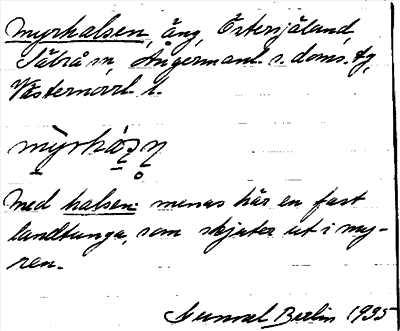 myrhalsen, äng, Östersjäland,
Säbrå sn, Ångermanl. s. doms. tg,
Västernorrl. l.
med halsen menas här en fast
landtunga, som skjuter ut i my-
ren.
Gunnel Berlin 1935